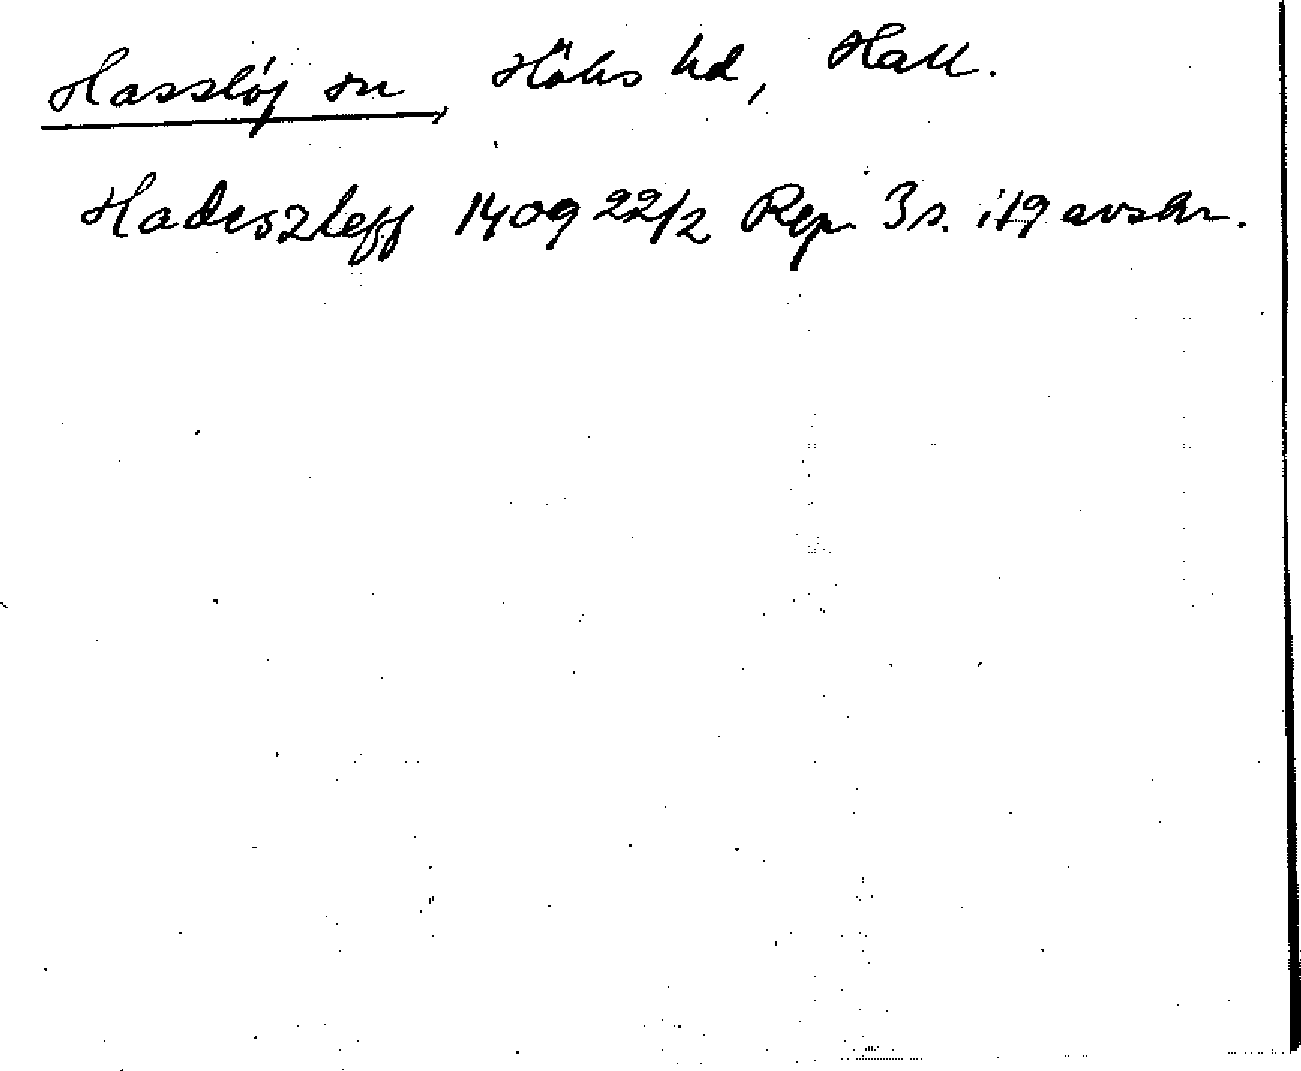 Hasslöj sn, Höks hd, Hall.
Hadeszleff 1409 22/2 Rep. 3 s. 179 avskr.